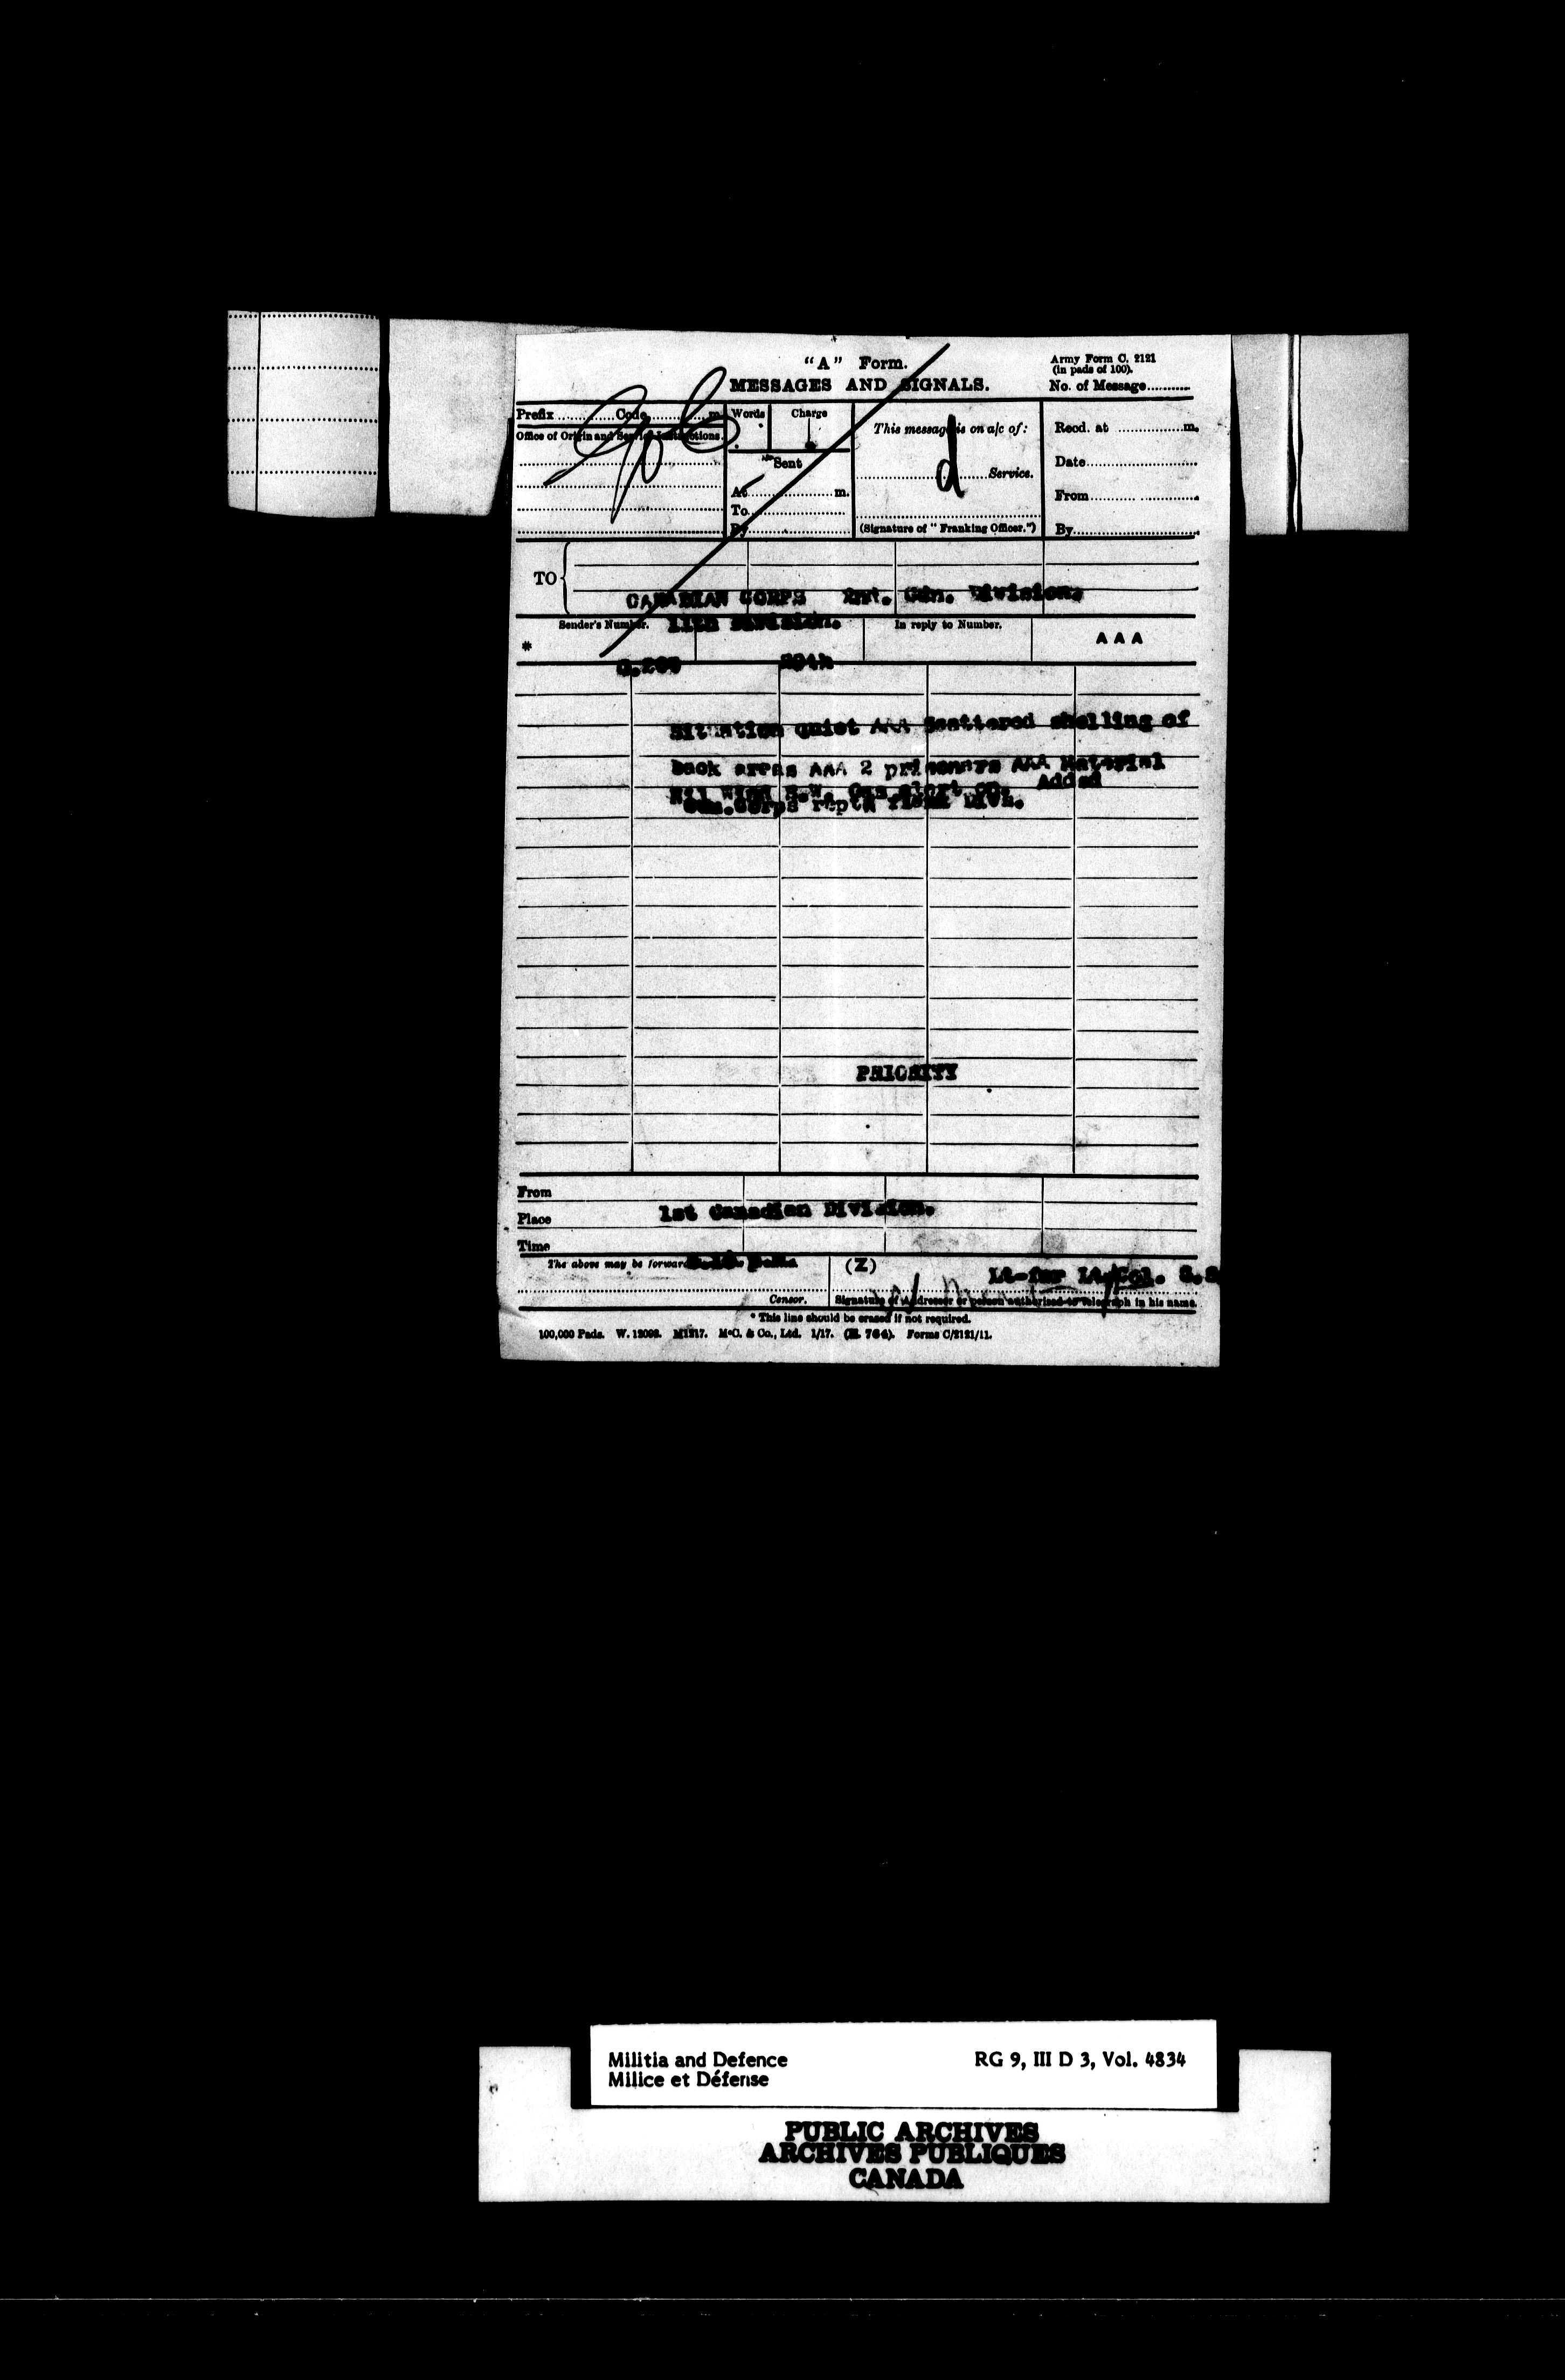 "A" Form.
MESSAGES AND SIGNALS.
Army Form C. 2121
(in pads of 100).
No. of Message
Prefix Code m.
Office of Origin and Service Instructions.
Words Charge
Sent
At m.
To
By
This message is on a/c of:
Service.
(Signature of "Franking Officer.")
Recd. at m.
Date
From
By
TO
CANADIAN CORPS Cdn. Division.
11th Division.
Sender's Number. In reply to Number.
* AAA
Situation quiet AAA Scattered shelling of
back areas AAA 2 prisoners AAA Material
Nil Wind Gas alert Added
Cdn.Corps reptd
PRIORITY
From
Place 1st Canadian Division.
Time
The above may be forward
(Z)
Lt-for Lt.Col. G.S
Censor. Signature of Addressor or person authorised to telegraph in his name.
* This line should be erased if not required.
100,000 Pads. W. 12098. M1217. McC. & Co., Ltd. 1/17. (E. 764). Forms C/2121/11.
Militia and Defence RG 9, III D 3, Vol. 4834
Milice et Défense
PUBLIC ARCHIVES
ARCHIVES PUBLIQUES
CANADA